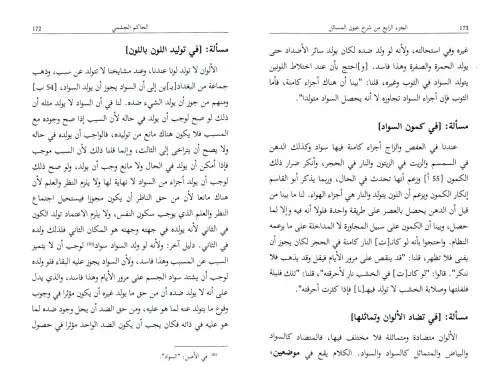 172
الحاكم الجشمي
مسألة: [في توليد اللون باللون]
الألوان لا تولد لونا عندنا، وعند مشايخنا لا تتولد عن سبب، وذهب
جماعة من البغداد[يـ]ين إلى أن السواد يجوز أن يولد السواد، [54 ب]
ومنهم من جوز أن يولد الشيء ضده. لنا في أن السواد لا يولد مثله أن
لوجب أن يولد في حاله لأن السبب إذا صح وجوده مع
المسبب فلا يكون هناك مانع من توليده، فالواجب أن يولده في حاله
ولا يصح أن يتراخى إلى الثالث، وإنما قلنا ذلك لأن السواد لو ولد
فإذا أمكن أن يولد في الحال ولا مانع وجب أن يولد، ولو كان كذلك
لوجب أن يولد أجزاء من السواد لا نهاية لها ولا يلزم النظر والعلم لأن
النظر لا يولد العلم لأن من حق الناظر أن يكون مجوزا فيستحيل اجتماع
النظر والعلم الذي يوجب سكون النفس، ولا يلزم الاعتماد تولد الكون
في الثاني لأنه يولده في جهته وجهته هو المكان الثاني فلذلك ولده
في الثاني. دليل آخر: ولأنه لو ولد السواد سوادا¹⁵¹ لوجب أن لا يتميز
السبب عن المسبب بعد هذا فاسد، ولأن السواد يجوز عليه البقاء فلو ولده
لوجب أن يشتد سواد الجسم على مرور الأيام وهذا فاسد، والذي يدل
على أنه لا يولد ضده أن من حق ما يولد غيره أن يكون مؤثرا في وقوع
ما يتولد عنه لما هو عليه، ومن حق الضد أن يحيل وجود ضده لما
هو عليه في ذاته فكان يجب أن يكون الضد الواحد مؤثرا في حصول
¹⁵¹ في الأصل: "السواد".
الجزء الرابع من شرح عيون المسائل
173
غيره وفي استحالته، ولأنه لو ولد ضده لكان يولد سائر الأضداد حتى
يولد الحمرة والصفرة وهذا فاسد. [و]احتج بأن عند اختلاط اللونين
يتولد السواد في الثوب وغيره، قلنا: "بينا أن هناك أجزاء كامنة، فأما
الثوب فإن أجزاء السواد تجاوره لا أنه يحصل السواد متولدا".
مسألة: [في كمون السواد]
عندنا في العفص والزاج أجزاء كامنة فيها سواد وكذلك الدهن
في السمسم والزيت في الزيتون والنار في الحجر، وأنكر ضرار ذلك
الكمون [55 أ] وزعم أنها تحدث في الحال، وربما يذكر أبو القاسم
إنكار الكمون ويزعم أن اللون يتولد والنار هي أجزاء الهواء. لنا ما بينا من
قبل أن الدهن يحصل بالعصر على طريقة واحدة فلولا أنه فيه وإلا لما
حصل، وبينا أن الكمون على سبيل المجاورة لا المداخلة على ما يذكره
النظام. واحتجوا بأنه لو كانـ[ـت] النار كامنة في الحجر لكان يجوز أن
تطفى أو تظهر، قلنا: "قد ينقص على مرور الأيام فيقل وقد يذهب فلا
ننكر". قالوا: "لو كانـ[ـت] في الخشب نار لأحرقته"، قلنا: "تلك قليلة
فلقلتها وصلابة الخشب لا توجد فيهـ[ـا] فإذا كثرت أحرقته".
مسألة: [في تضاد الألوان وتماثلها]
الألوان متضادة ومتماثلة لا مختلف فيها، فالمتضاد كالسواد
والبياض والمتماثل كالسواد والسواد. الكلام يقع في موضعين،